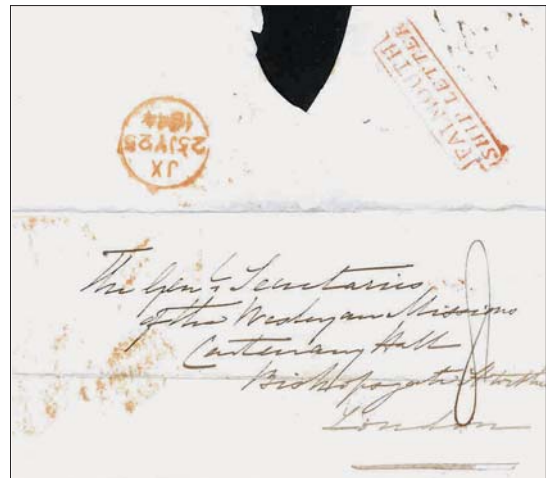 FALMOUTH
SHIP LETTER
JX
25JY25
1844
The Genl Secretaries
of the Wesleyan Missions
Centenary Hall
Bishopsgate Within
London
8